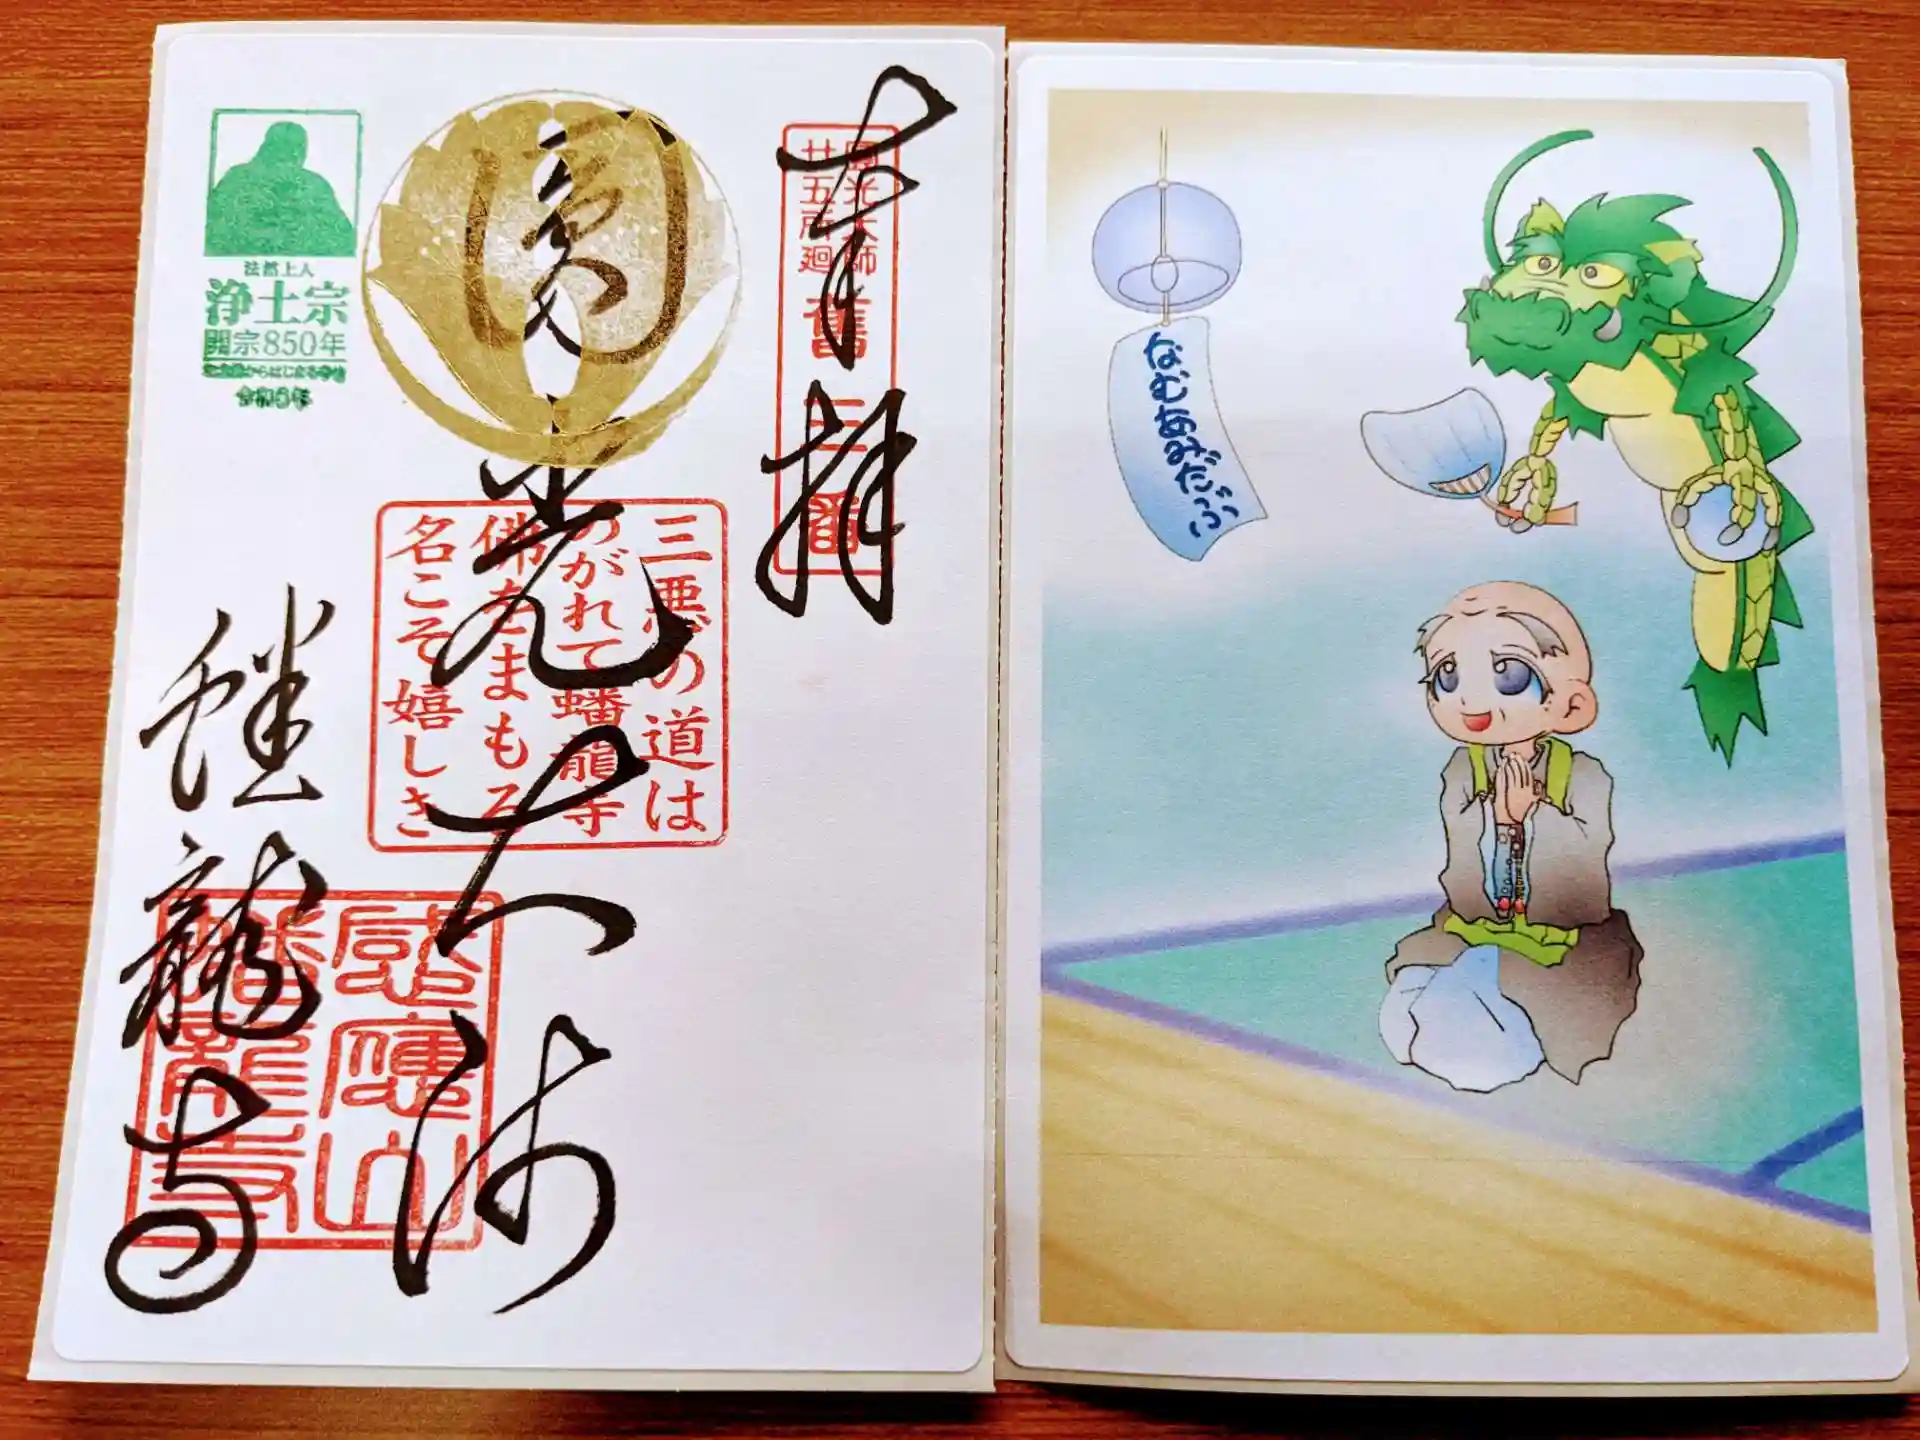 奉拝
圓光大師
廿五所廻
舊三番
圓光大師
三悪の道は
のがれて蟠龍寺
佛をまもる
名こそ嬉しき
蟠龍寺
感應山
蟠龍寺
法然上人
浄土宗
開宗850年
なむあみだぶ